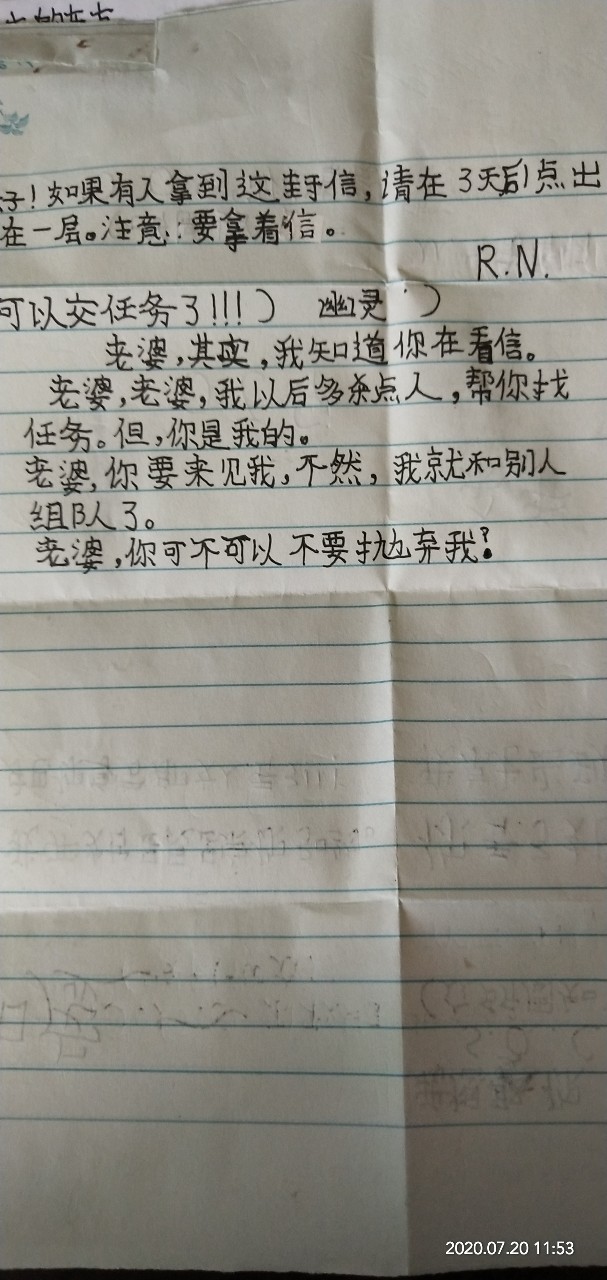 子!如果有人拿到这封信,请在3天后1点出
在一层。注意:要拿着信。
R.N.
可以交任务了!!!) 幽灵 )
老婆,其实,我知道你在看信。
老婆,老婆,我以后多杀点人,帮你找
任务。但,你是我的。
老婆,你要来见我,不然,我就和别人
组队了。
老婆,你可不可以不要抛弃我?
2020.07.20 11:53